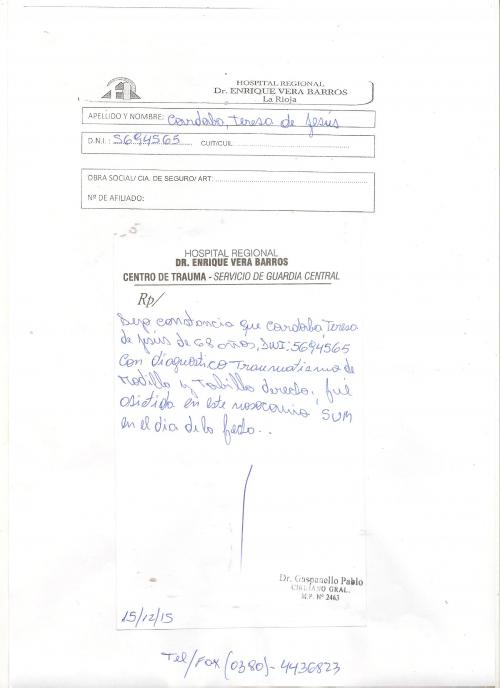 HOSPITAL REGIONAL
Dr. ENRIQUE VERA BARROS
La Rioja
APELLIDO Y NOMBRE: Cordoba, Teresa de Jesús
D.N.I.: 5694565 CUIT/CUIL
OBRA SOCIAL/ CIA. DE SEGURO/ ART:
Nº DE AFILIADO:
HOSPITAL REGIONAL
DR. ENRIQUE VERA BARROS
CENTRO DE TRAUMA - SERVICIO DE GUARDIA CENTRAL
Rp/
Dejo constancia que Cordoba, Teresa
de Jesús de 68 años, DNI: 5694565
Con diagnostico Traumatismo de
Rodilla y Tobillo derecho, fué
asistida en este nosocomio, SUM
en el dia de la fecha..
Dr. Gaspanello Pablo
CIRUJANO GRAL.
M.P. Nº 2463
15/12/15
Tel/Fax (0380)-4436823